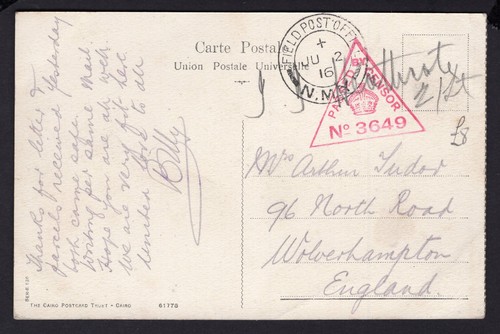 Carte Postale
Union Postale Universelle
FIELD POST OFFICE
+
JU 2
16
N.M.
PASSED BY CENSOR
No 3649
2/Lt
£8
Thanks for letter &
parcels received yesterday
both came safe.
Writing per same mail
Hope you are all well.
We are very fit etc.
United love to all
Billy
Mrs Arthur Tudor
96 North Road
Wolverhampton
England.
SERIE 120
THE CAIRO POSTCARD TRUST - CAIRO
61772